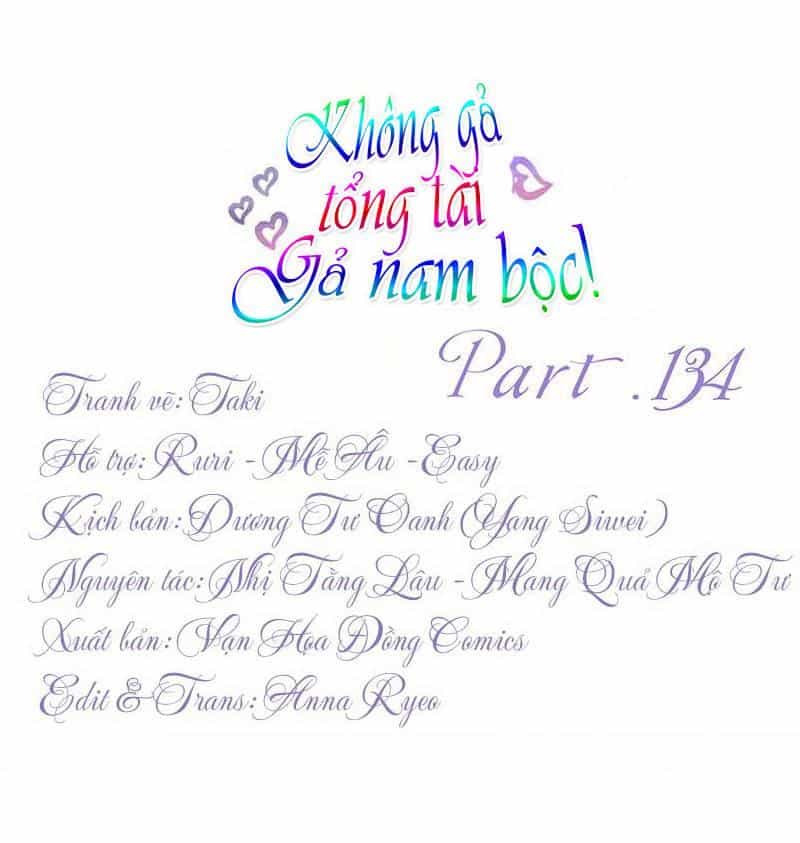 Không gả
tổng tài
Gả nam bộc!
Part .134
Tranh vẽ: Taki
Hỗ trợ: Ruri - Mễ Âu - Easy
Kịch bản: Dương Tư Oanh (Yang Siwei)
Nguyên tác: Nhị Tằng Lâu - Mang Quả Mô Tư
Xuất bản: Vạn Họa Đồng Comics
Edit & Trans: Anna Ryeo